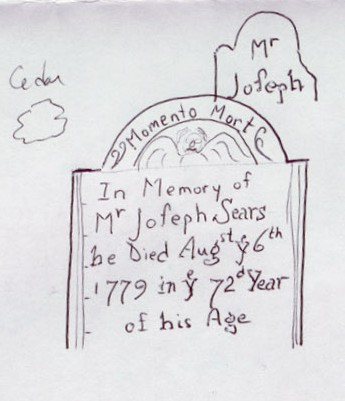 Mr
Joſeph
Cedar
Momento Mori
In Memory of
Mr Joſeph Sears
he Died Augst ye 6th
1779 in ye 72d Year
of his Age